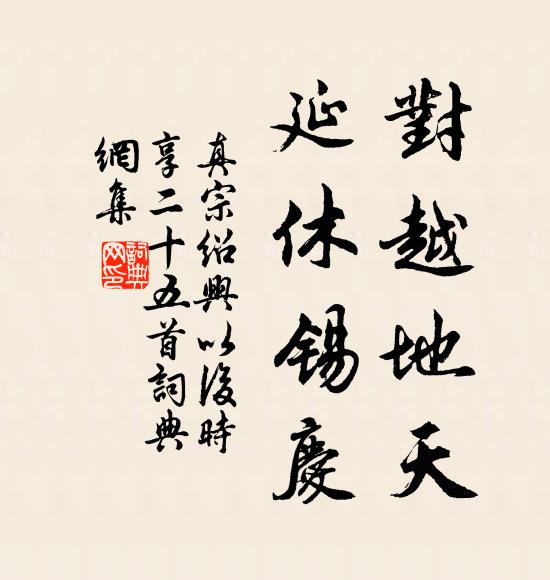 對越地天
延休錫慶
真宗紹興以後時
享二十五首詞典
網集
詞典網印